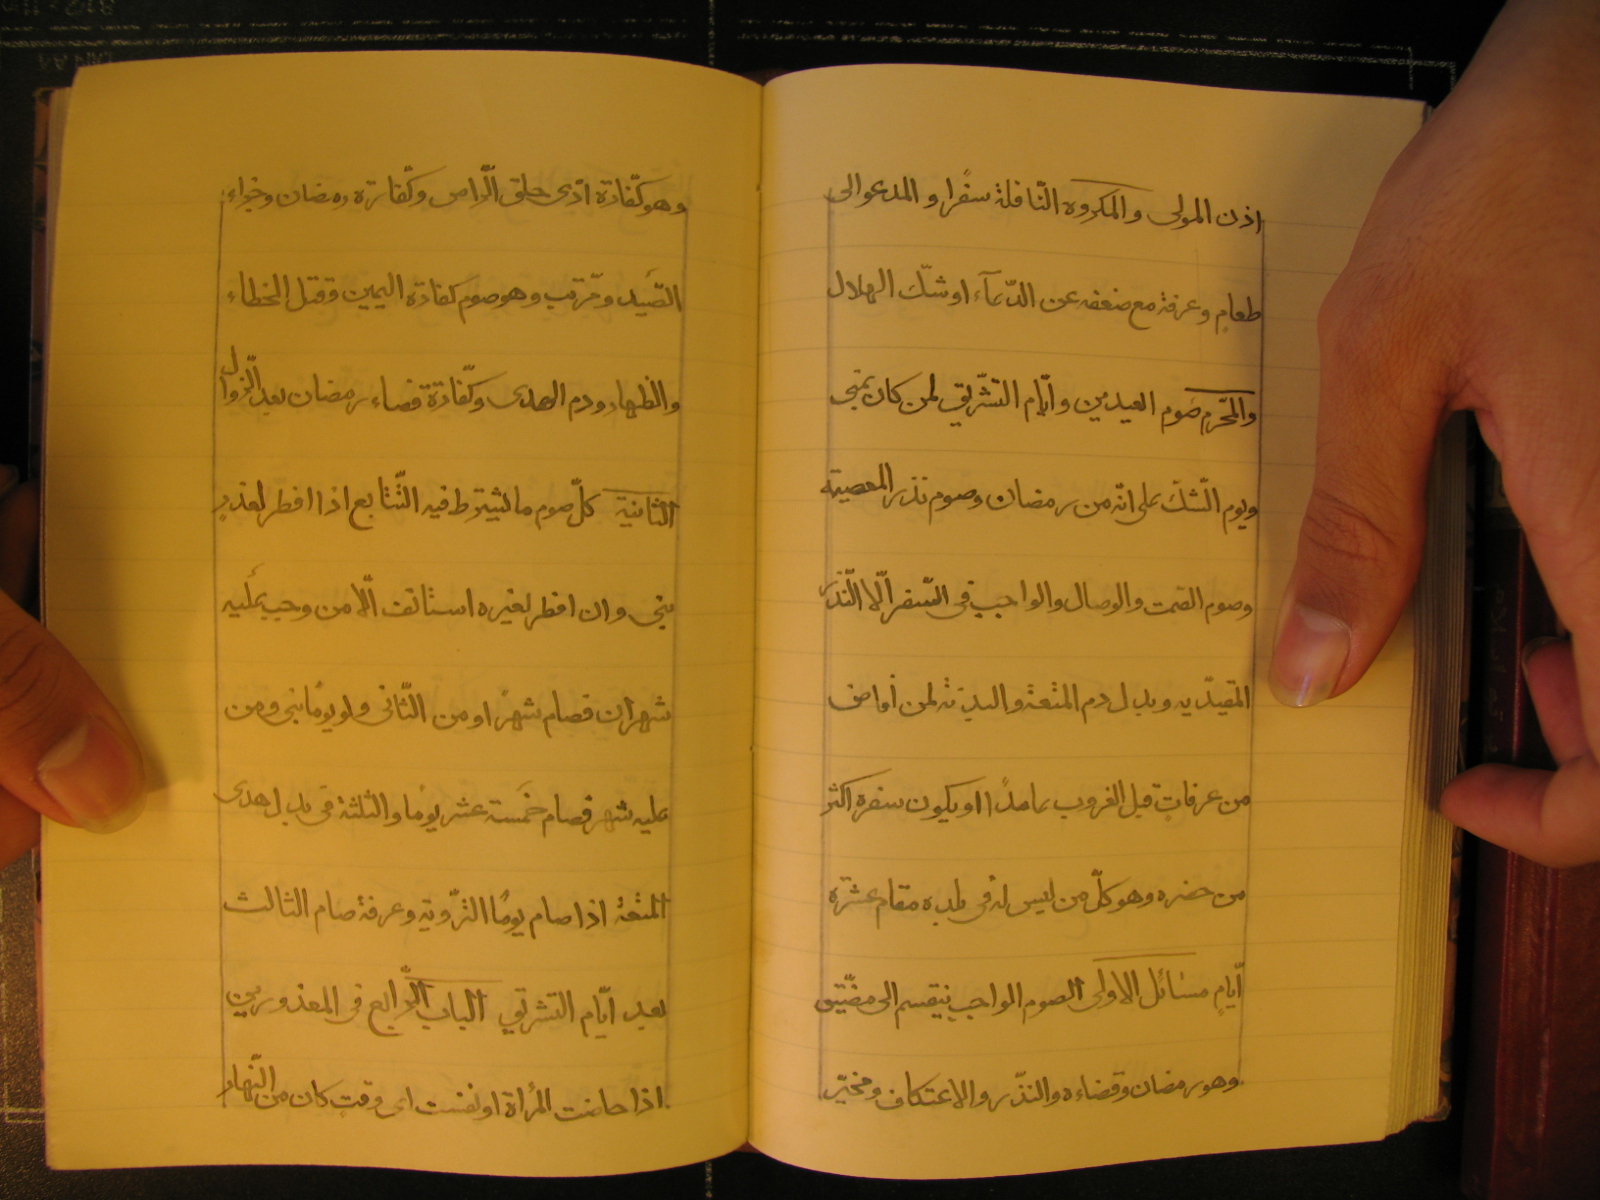 اذن المولى والمكروه النّافلة سفرا و المدعو الى
طعامٍ وعرفة مع ضعفه عن الدّعآء او شكّ الهلال
والمحّرم صوم العيدين و ايّام التّشريق لمن كان بمنى
ويوم الشّك على انّه من رمضان وصوم نذر المعصية
وصوم الصمت والوصال والواجب فى السّفر الّا النّذر
المقيّد به و بدل دم المتعة والبدنة لمن أفاض
من عرفاتٍ قبل الغروب عامدًا او يكون سفره اكثر
من حضره وهو كلّ من ليس له فى بلده مقام عشرة
أيّامٍ مسائل الاولى الصوم الواجب ينقسم الى مضّيق
وهو رمضان وقضاءه والنذّر والاعتكاف ومخيّر
وهو كفّارة اذى حلق الرّاس وكفّارة رمضان وجزاء
الصّيد ومرّتب وهو صوم كفارة اليمين وقتل الخطاء
والظهار ودم الهدى وكفّارة قضاء رمضان بعد الزّوال
الثانية كلّ صوم ما يشترط فيه التّتابع اذا افطر لعذرٍ
بنى وان افطر لغيره استأنف الّا من وجب عليه
شهران فصام شهرًا و من الثّانى ولو يومًا بنى ومن
عليه شهر فصام خمسة عشر يومًا والثلثة فى بدل هدى
المتعة اذا صام يومًا التّروية وعرفة صام الثالث
بعد ايّام التشريق الباب الرّابع فى المعذورين
اذا حاضت المرأة او نفست اى وقتٍ كان من النّهار